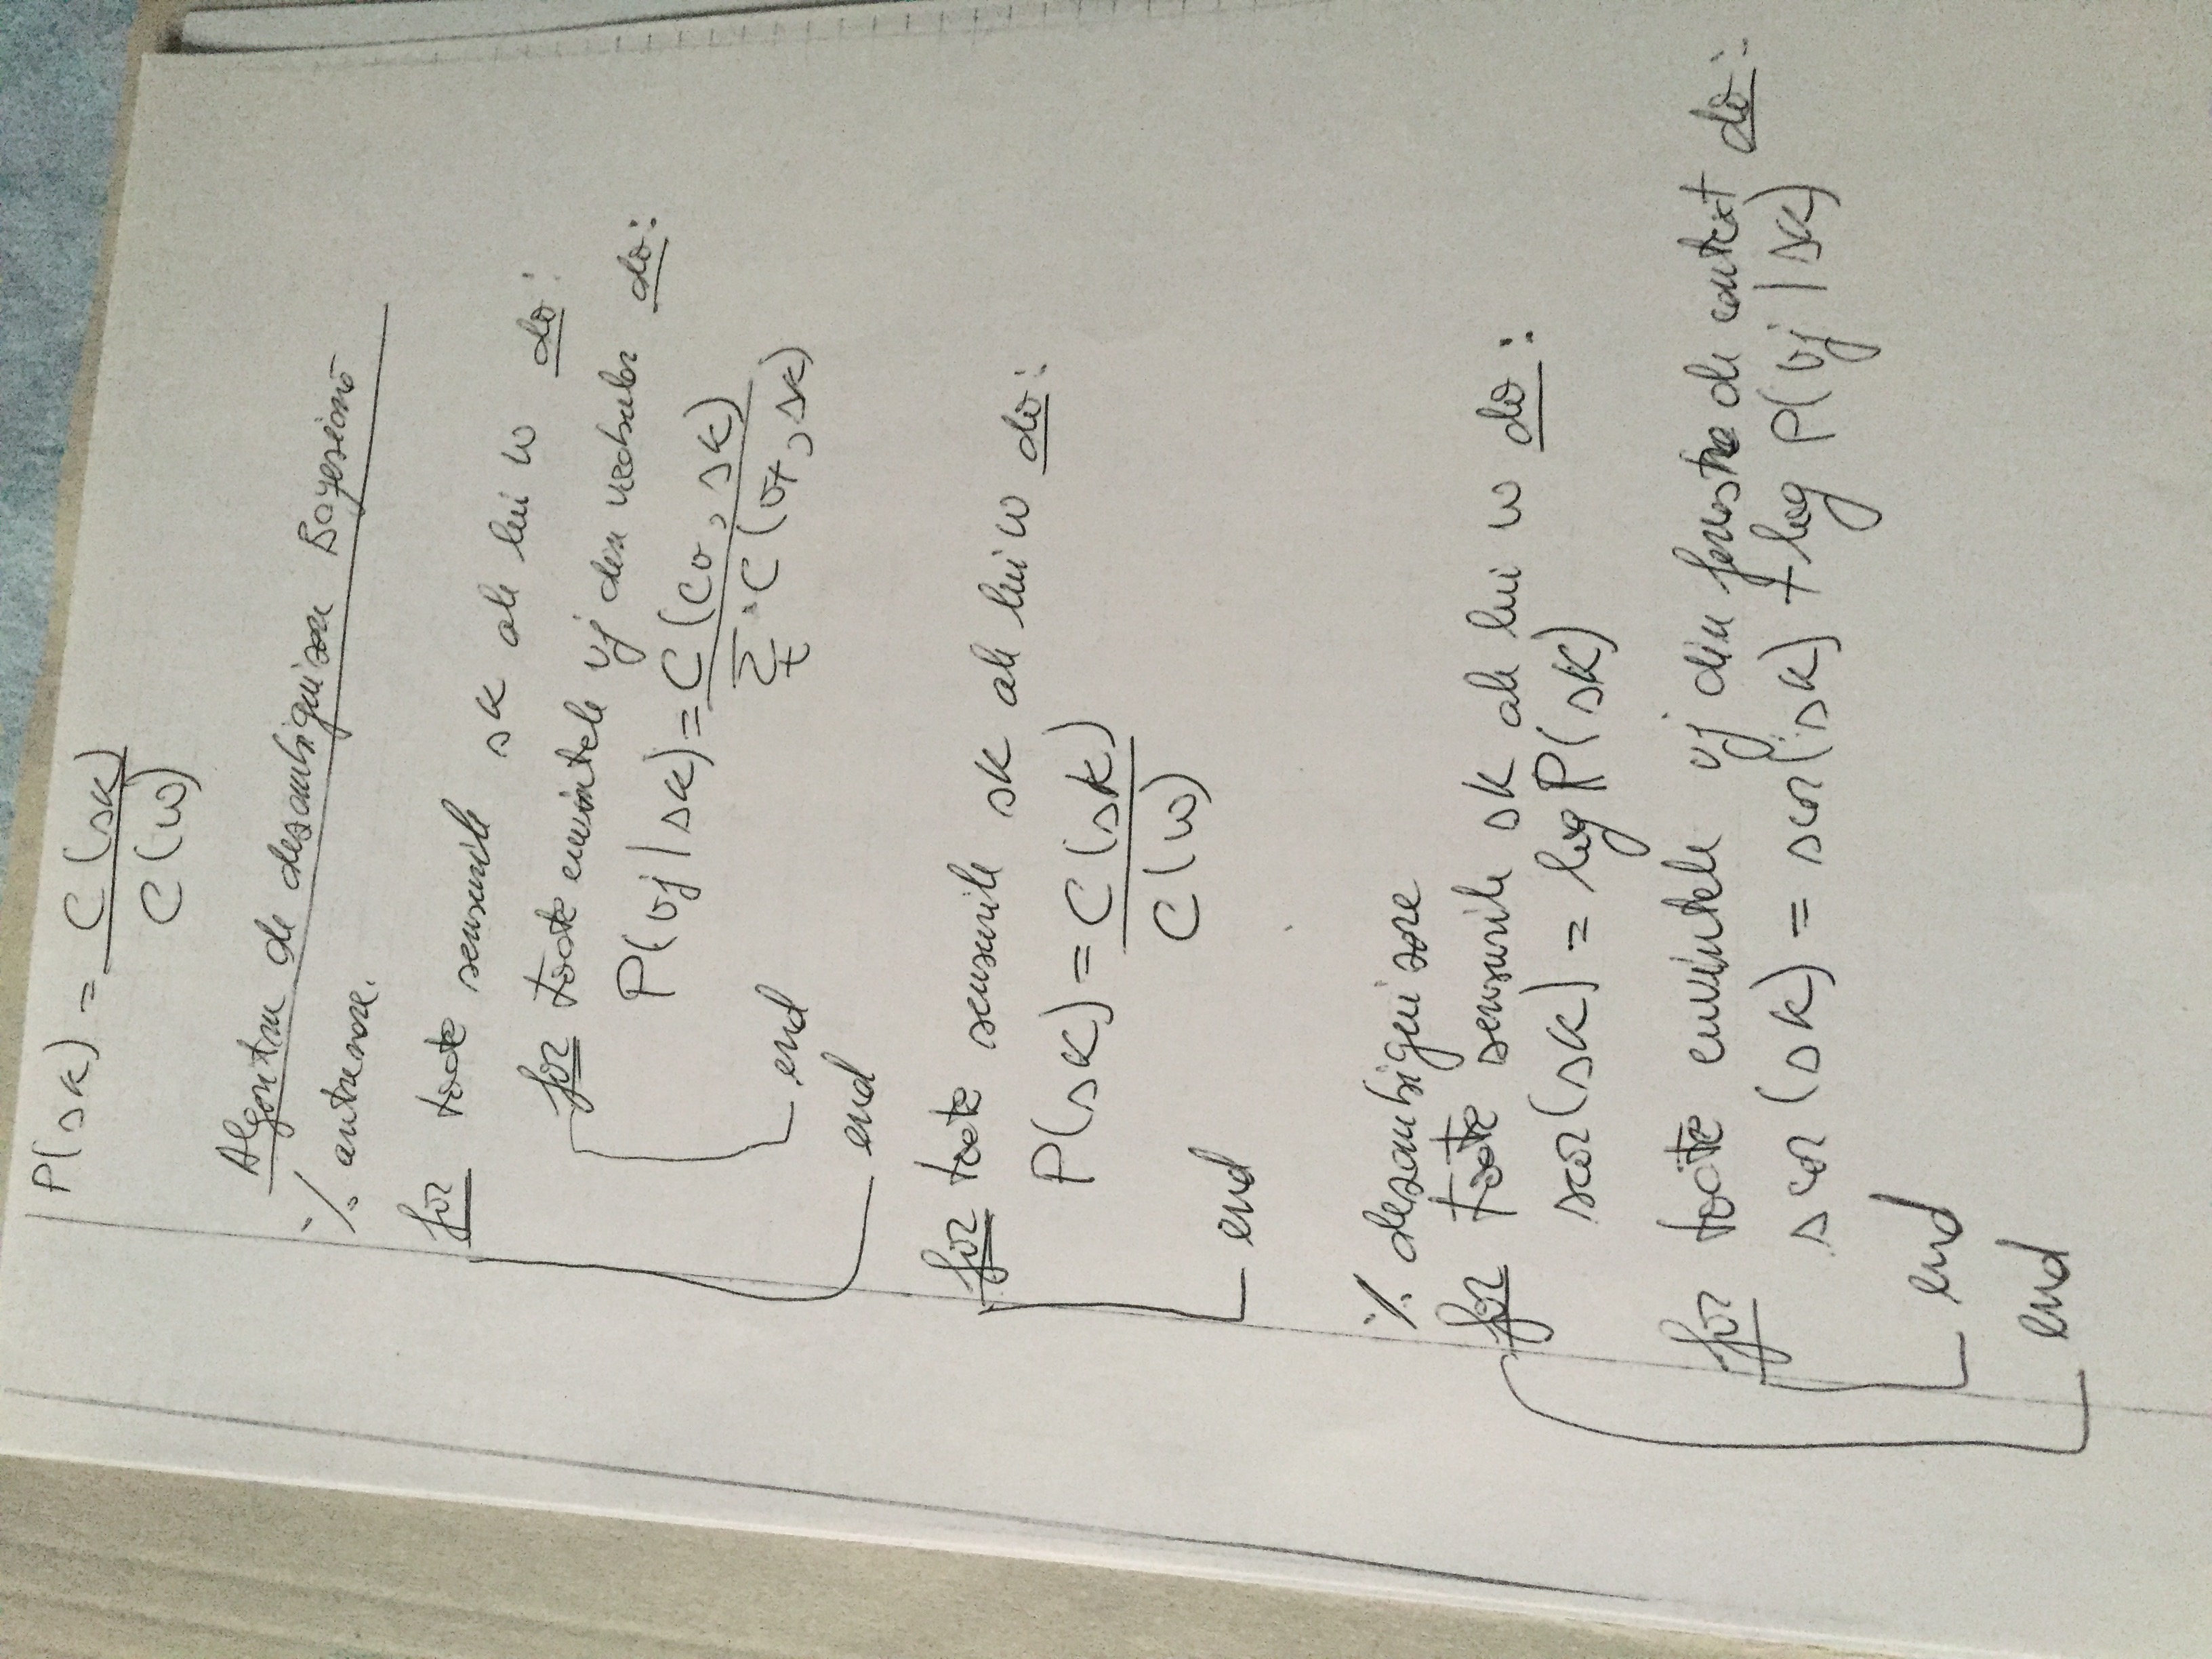 P(sk) = C(sk)
C(w)
Algoritm de dezambiguizare Bayesiană
% antrenare.
for toate sensurile sk ale lui w do:
for toate cuvintele vj din vocabular do:
P(vj|sk) = C(cv, sk)
Σ C(vt, sk)
t
end
end
for toate sensurile sk ale lui w do:
P(sk) = C(sk)
C(w)
end
% dezambiguizare
for toate sensurile sk ale lui w do:
scor(sk) = log P(sk)
for toate cuvintele vj din fereastra de context do:
scor(sk) = scor(sk) + log P(vj|sk)
end
end